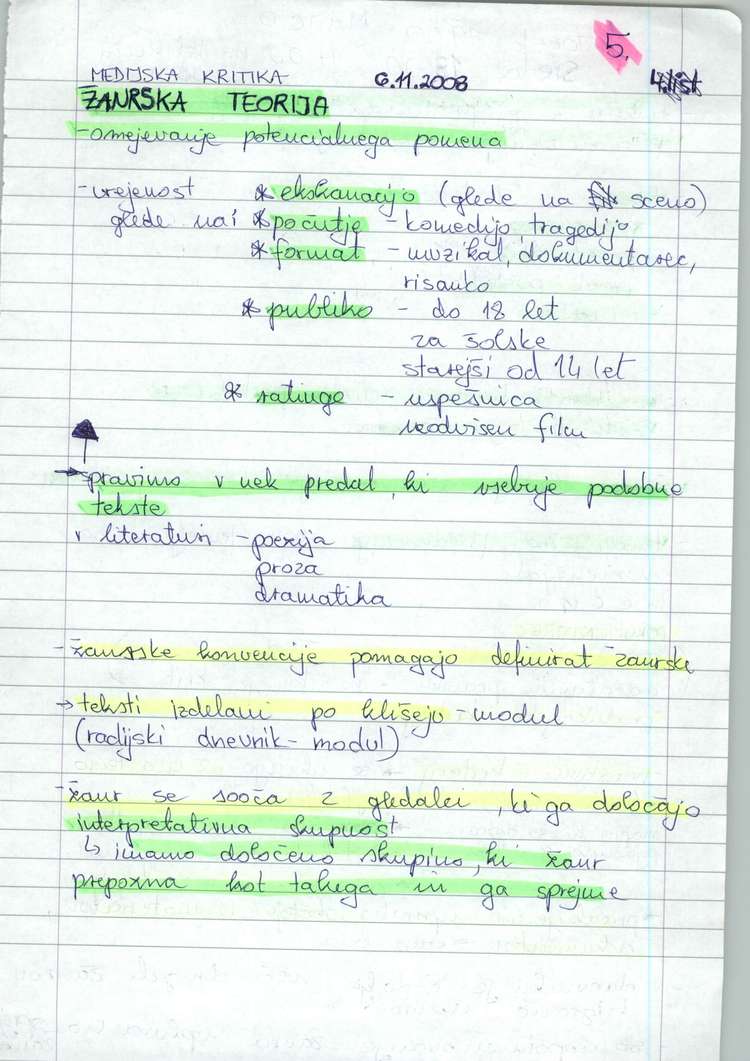 5.
MEDIJSKA KRITIKA 6.11.2008
ŽANRSKA TEORIJA
- omejevanje potencialnega pomena
- urejenost * ekskanacijo (glede na sceno)
glede na: * počutje - komedijo, tragedijo
* format - muzikal, dokumentarec,
risanko
* publiko - do 18 let
za šolske
starejši od 14 let
* ratinge - uspešnica
neodvisen film
→ spravimo v nek predal, ki vsebuje podobne
tekste
v literaturi - poezija
proza
dramatika
- žanrske konvencije pomagajo definirat žanrske
→ teksti izdelani po klišeju - modul
(radijski dnevnik - modul)
- žanr se sooča z gledalci, ki ga določajo
interpretativna skupnost
↳ imamo določeno skupino, ki žanr
prepozna kot takega in ga sprejme